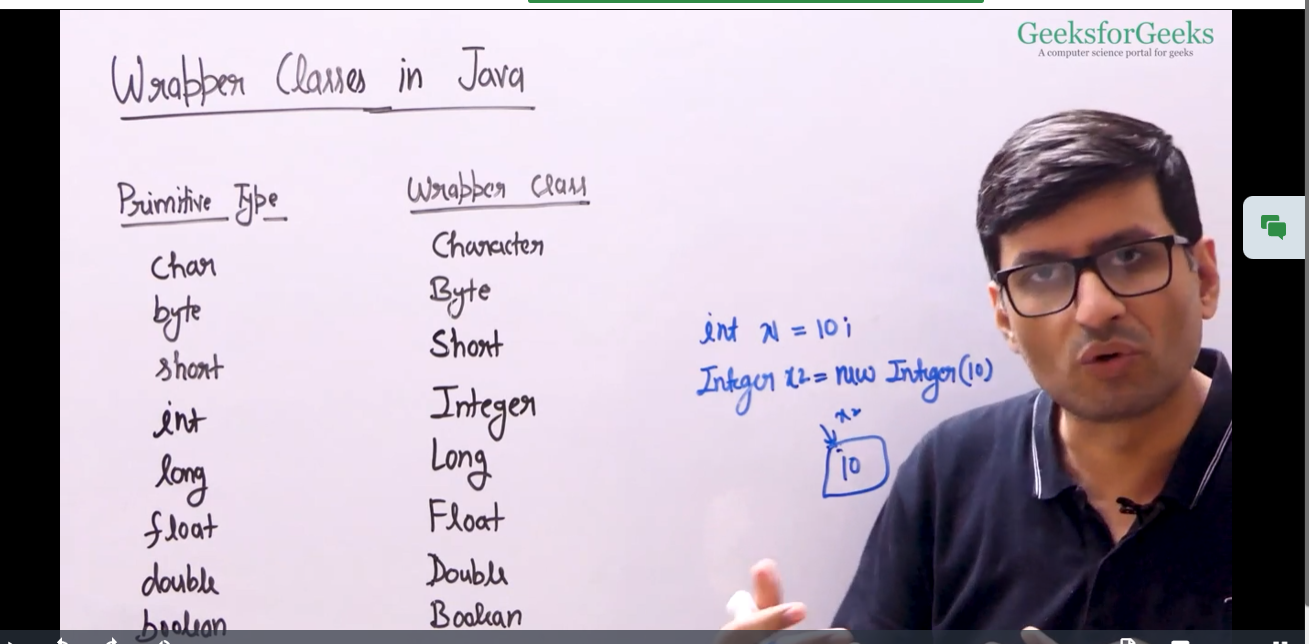 GeeksforGeeks
A computer science portal for geeks
Wrapper Classes in Java
Primitive Type
Wrapper Class
char
Character
byte
Byte
short
Short
int
Integer
long
Long
float
Float
double
Double
boolean
Boolean
int x1 = 10;
Integer x2 = new Integer(10)
x2
10